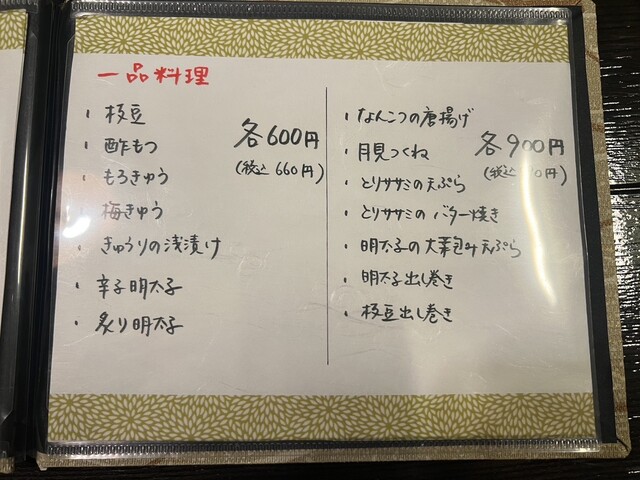 一品料理
・枝豆
・酢もつ
・もろきゅう
・梅きゅう
・きゅうりの浅漬け
・辛子明太子
・炙り明太子
各600円
(税込 660円)
・なんこつの唐揚げ
・月見つくね
・とりササミの天ぷら
・とりササミのバター焼き
・明太子の大葉包み天ぷら
・明太子出し巻き
・枝豆出し巻き
各900円
(税込 0円)